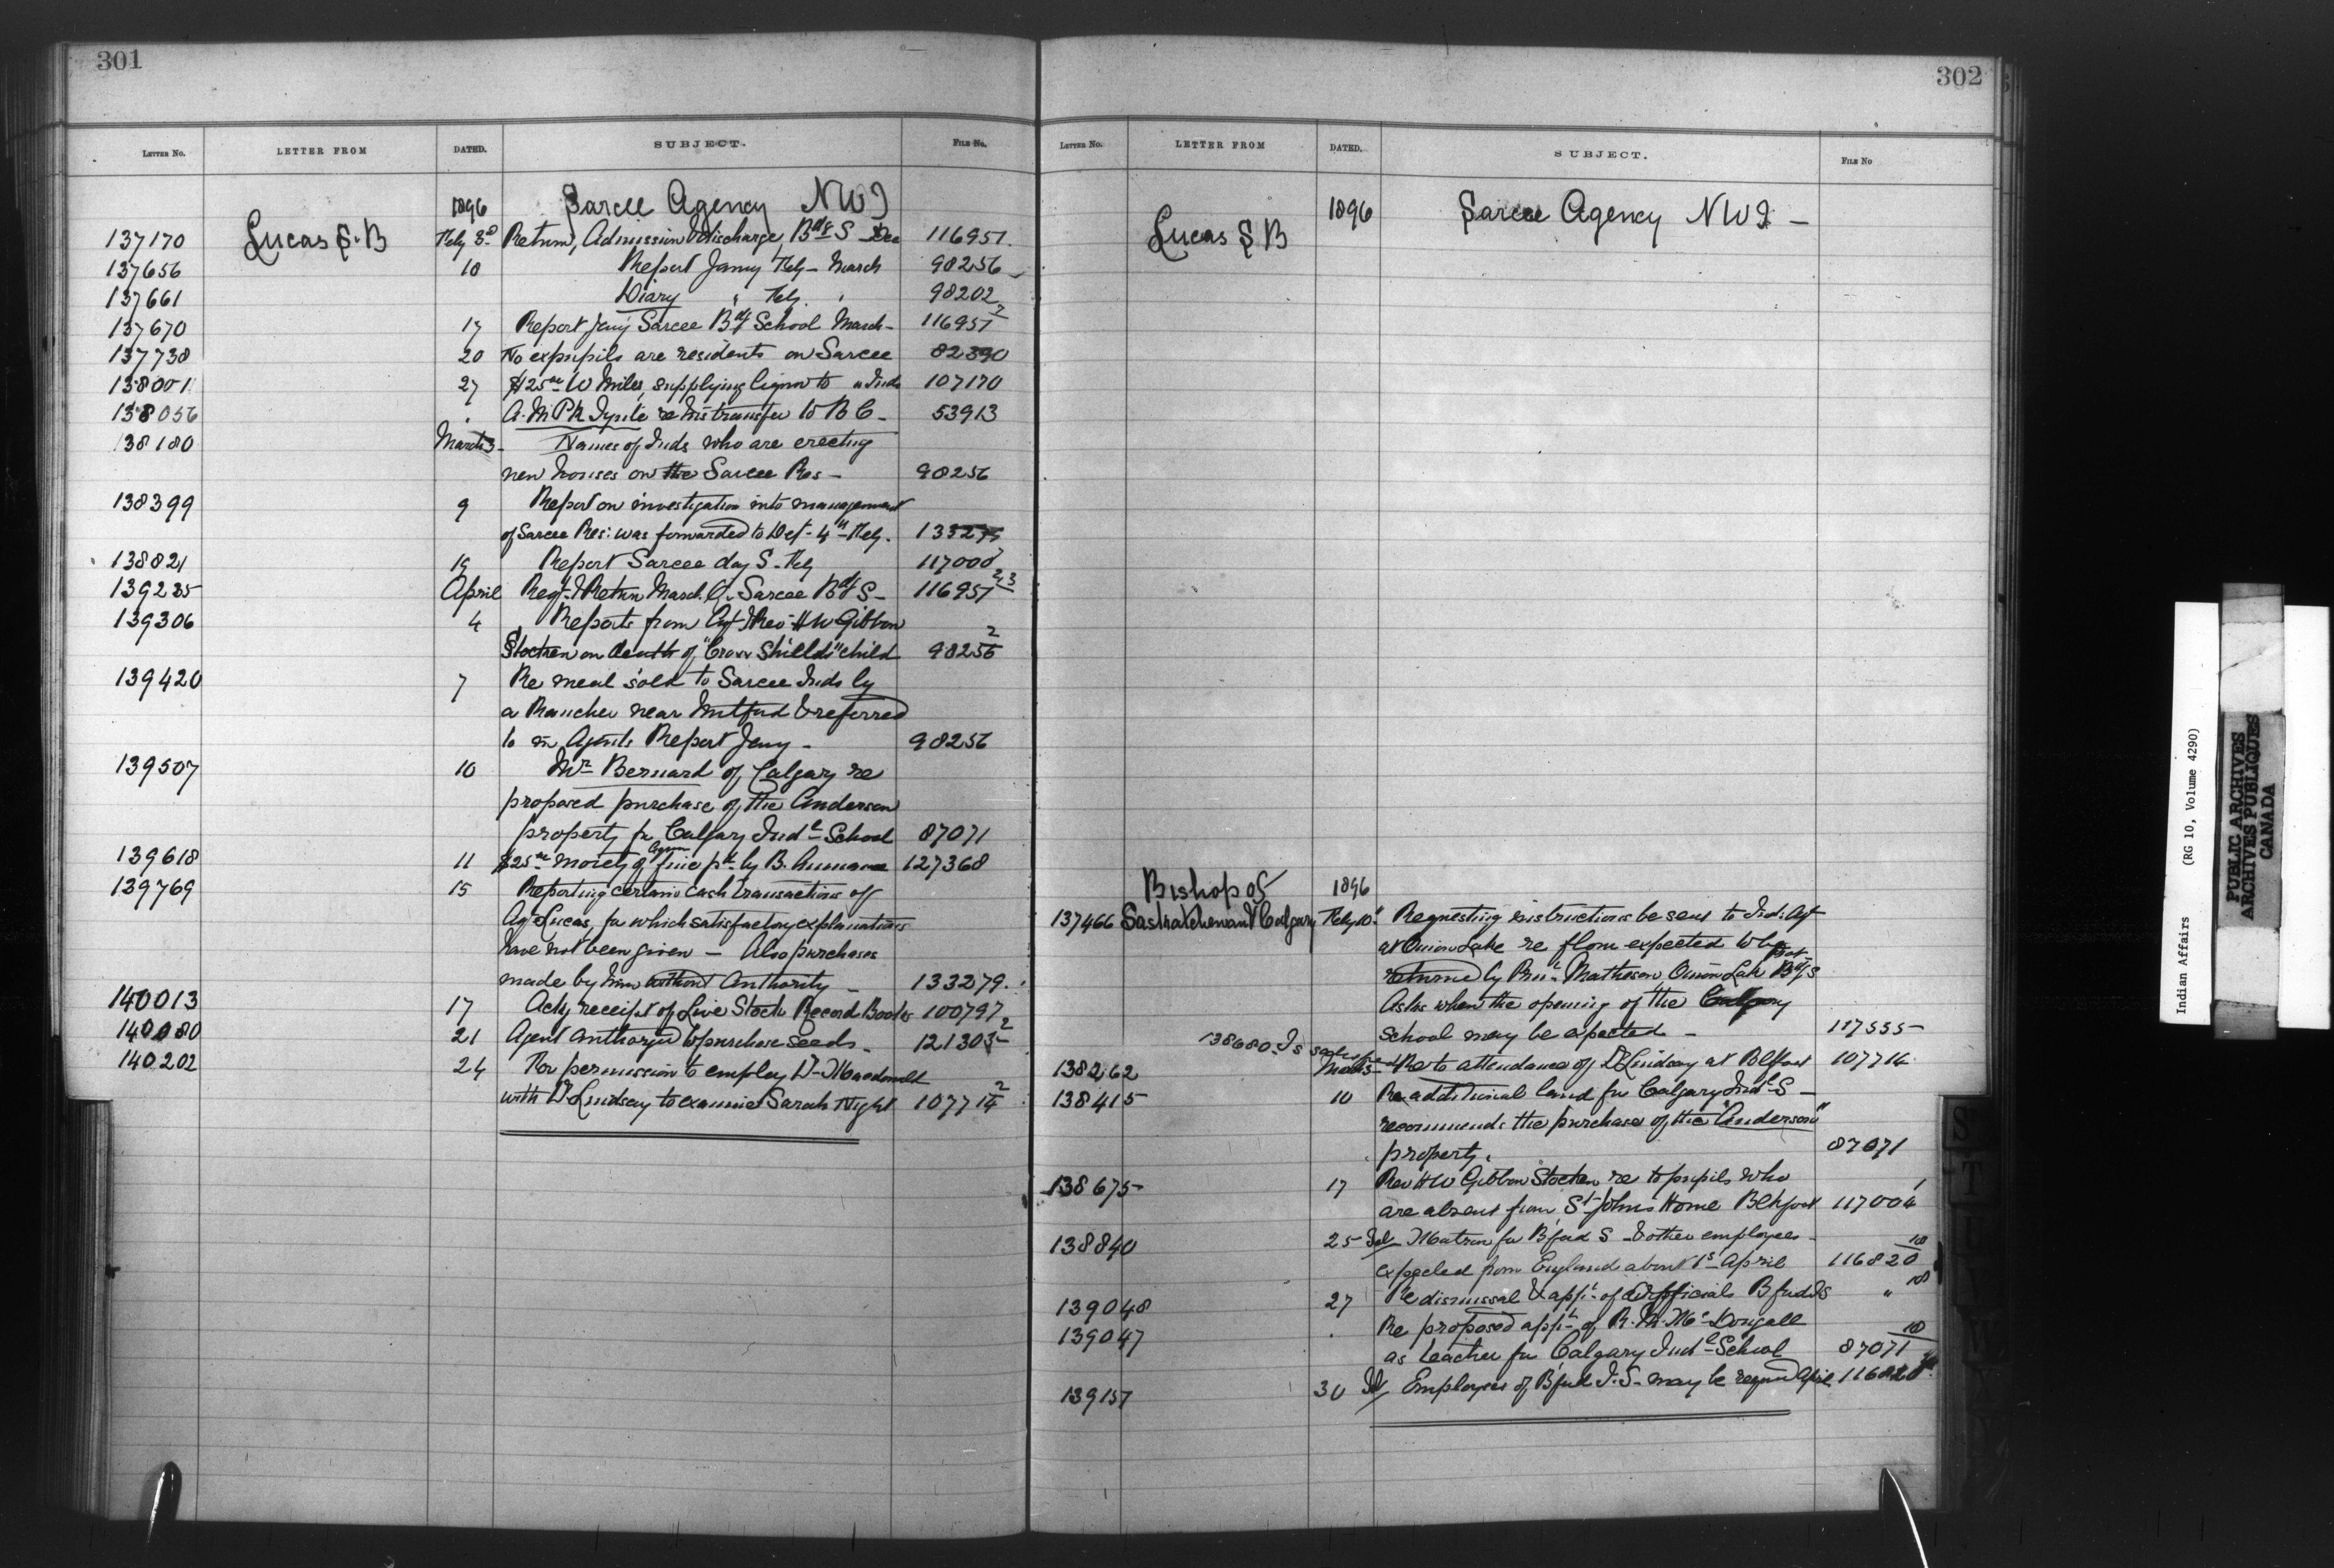 301
LETTER NO. LETTER FROM DATED. SUBJECT. FILE NO.
1896 Sarcee Agency NWT
137170 Lucas S.B Feby 3rd Return, Admission & discharge, Bdg S Dec 116957
137656 10 Report Jany Feby March 98256
137661 Diary " Feby 98202
137670 17 Report Jany Sarcee Bdg School March 116957 2
137738 20 No expupils are residents on Sarcee 82390
138001 27 $25 00 W Miles, supplying liquor to Inds 107170
138056 " re his transfer to B C 53913
138180 March 3 Names of Inds who are erecting
new houses on the Sarcee Res 98256
138399 9 Report on investigation into management
of Sarcee Res: was forwarded to Det 4th Feby. 133279
138821 19 Report Sarcee day S. Feby 117000
139235 April Regr & Return March Q. Sarcee Bdg S 116957 2,3
139306 4 Reports from Agt & Rev H W Gibbon
Stocken on death of "Crow Shields" child 98256 2
139420 7 Re meat sold to Sarcee Inds by
a Rancher near Mitford & referred
to in Agents Report Jany 98256
139507 10 Mr Bernard of Calgary re
proposed purchase of the Anderson
property for Calgary Indl School 87071
139618 11 $25 00 moiety of fine pd by B. 127368
139769 15 Reporting certain cash transactions of
Agt Lucas, for which satisfactory explanations
have not been given — Also purchases
made by him without Authority 133279
140013 17 Ackg receipt of Live Stock Record Books 100797
140080 21 Agent authorized to purchase seeds 121303 2
140202 24 For permission to employ Dr Macdonald
with Dr Lindsay to examine Sarah Night 107714 2
302
LETTER NO. LETTER FROM DATED. SUBJECT. FILE NO
Lucas S B 1896 Sarcee Agency NWT —
Bishop of 1896
137466 Saskatchewan & Calgary Feby 10 Requesting instructions be sent to Ind: Agt
at Onion Lake re flour expected to be
returned by Prin: Matheson, Onion Lake Prot Bdg S
Asks when the opening of the Calgary
School may be expected — 117555
138680. Is
138262 March 5 Re to attendance of Dr Lindsay at Blkfoot 107714
138415 10 Re additional land for Calgary Indl S —
recommends the purchase of the "Anderson"
property. 87071
138675 17 Rev H W Gibbon Stocken re to pupils who
are absent from St Johns Home Blkfoot 117004 1
138840 25 Tel Matron for Bford S & other employees
expected from England about 1st April 116820 10
139048 27 Re dismissal & appt of officials Bford IS " 10
139047 Re proposed appt of R. Mc Dougall
as teacher for Calgary Indl School 87071 10
139157 30 Tel Employees of Bford I.S. may be April 116820
Indian Affairs (RG 10, Volume 4290)
PUBLIC ARCHIVES
ARCHIVES PUBLIQUES
CANADA